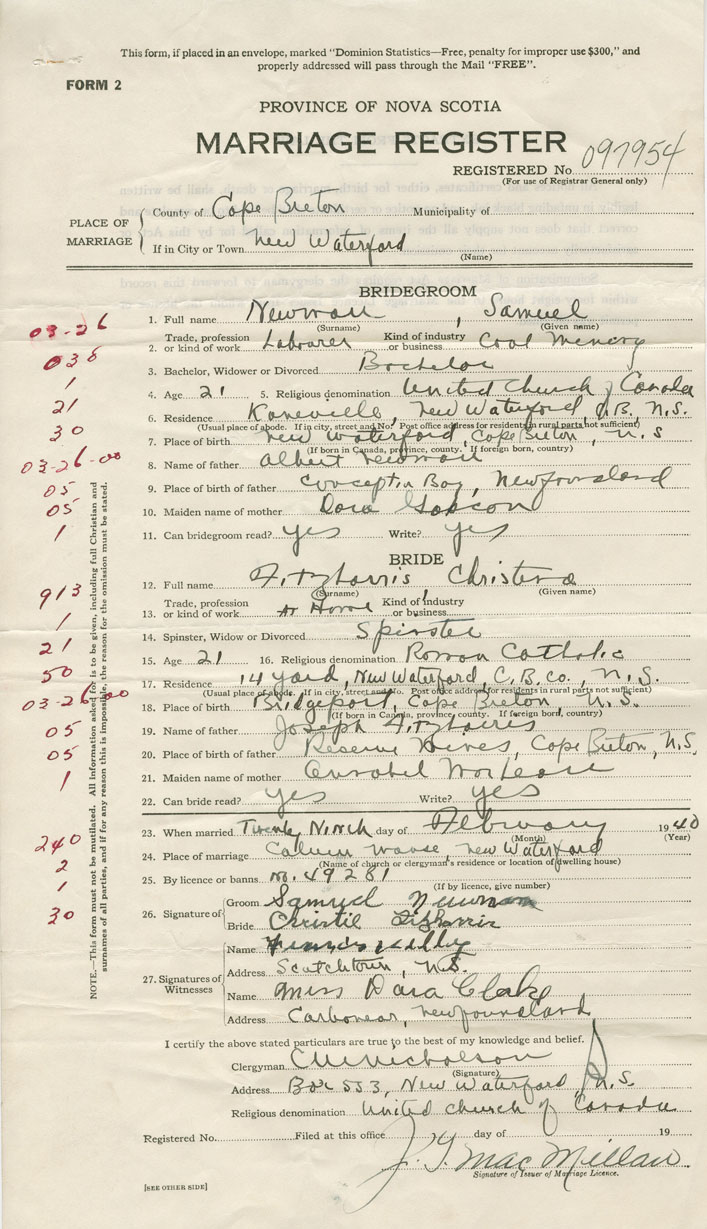 This form, if placed in an envelope, marked "Dominion Statistics—Free, penalty for improper use $300," and
properly addressed will pass through the Mail "FREE".
FORM 2
PROVINCE OF NOVA SCOTIA
MARRIAGE REGISTER
REGISTERED No. 097954
(For use of Registrar General only)
PLACE OF MARRIAGE
County of Cape Breton Municipality of
If in City or Town New Waterford
(Name)
BRIDEGROOM
03-26
1. Full name Newman, Samuel
(Surname) (Given name)
038
2. Trade, profession or kind of work Labourer Kind of industry or business Coal Mining
1
3. Bachelor, Widower or Divorced Bachelor
21
4. Age 21 5. Religious denomination United Church of Canada
30
6. Residence New Waterford, N.S.
(Usual place of abode. If in city, street and No. Post office address for residents in rural parts not sufficient)
03-26-00
7. Place of birth New Waterford, Cape Breton, N.S
(If born in Canada, province, county. If foreign born, country)
05
8. Name of father Albert Newman
05
9. Place of birth of father Conception Bay, Newfoundland
10. Maiden name of mother Dora
1
11. Can bridegroom read? yes Write? yes
BRIDE
913
12. Full name Fitzharris Christena
(Surname) (Given name)
1
13. Trade, profession or kind of work At Home Kind of industry or business
21
14. Spinster, Widow or Divorced Spinster
50
15. Age 21 16. Religious denomination Roman Catholic
03-26-00
17. Residence 14 yard, New Waterford, C.B. Co., N.S.
(Usual place of abode. If in city, street and No. Post office address for residents in rural parts not sufficient)
05
18. Place of birth Bridgeport, Cape Breton, N.S.
(If born in Canada, province, county. If foreign born, country)
05
19. Name of father Joseph Fitzharris
20. Place of birth of father Reserve Mines, Cape Breton, N.S.
1
21. Maiden name of mother Annabel
22. Can bride read? yes Write? yes
240
23. When married Twenty Ninth day of February 1940
(Month) (Year)
2
24. Place of marriage Manse, New Waterford
(Name of church or clergyman's residence or location of dwelling house)
1
25. By licence or banns no. 49281
(If by licence, give number)
30
26. Signature of
Groom Samuel Newman
Bride Christie Fitzharris
27. Signatures of Witnesses
Name Francis
Address Scotchtown, N.S.
Name Miss Dora Clarke
Address Carbonear, Newfoundland
NOTE.—This form must not be mutilated. All information asked for is to be given, including full Christian and
surnames of all parties, and if for any reason this is impossible, the reason for the omission must be stated.
I certify the above stated particulars are true to the best of my knowledge and belief.
Clergyman C M Nicholson
(Signature)
Address Box 553, New Waterford, N.S.
Religious denomination United Church of Canada
Registered No. Filed at this office day of 19
MacMillan
Signature of Issuer of Marriage Licence.
[SEE OTHER SIDE]